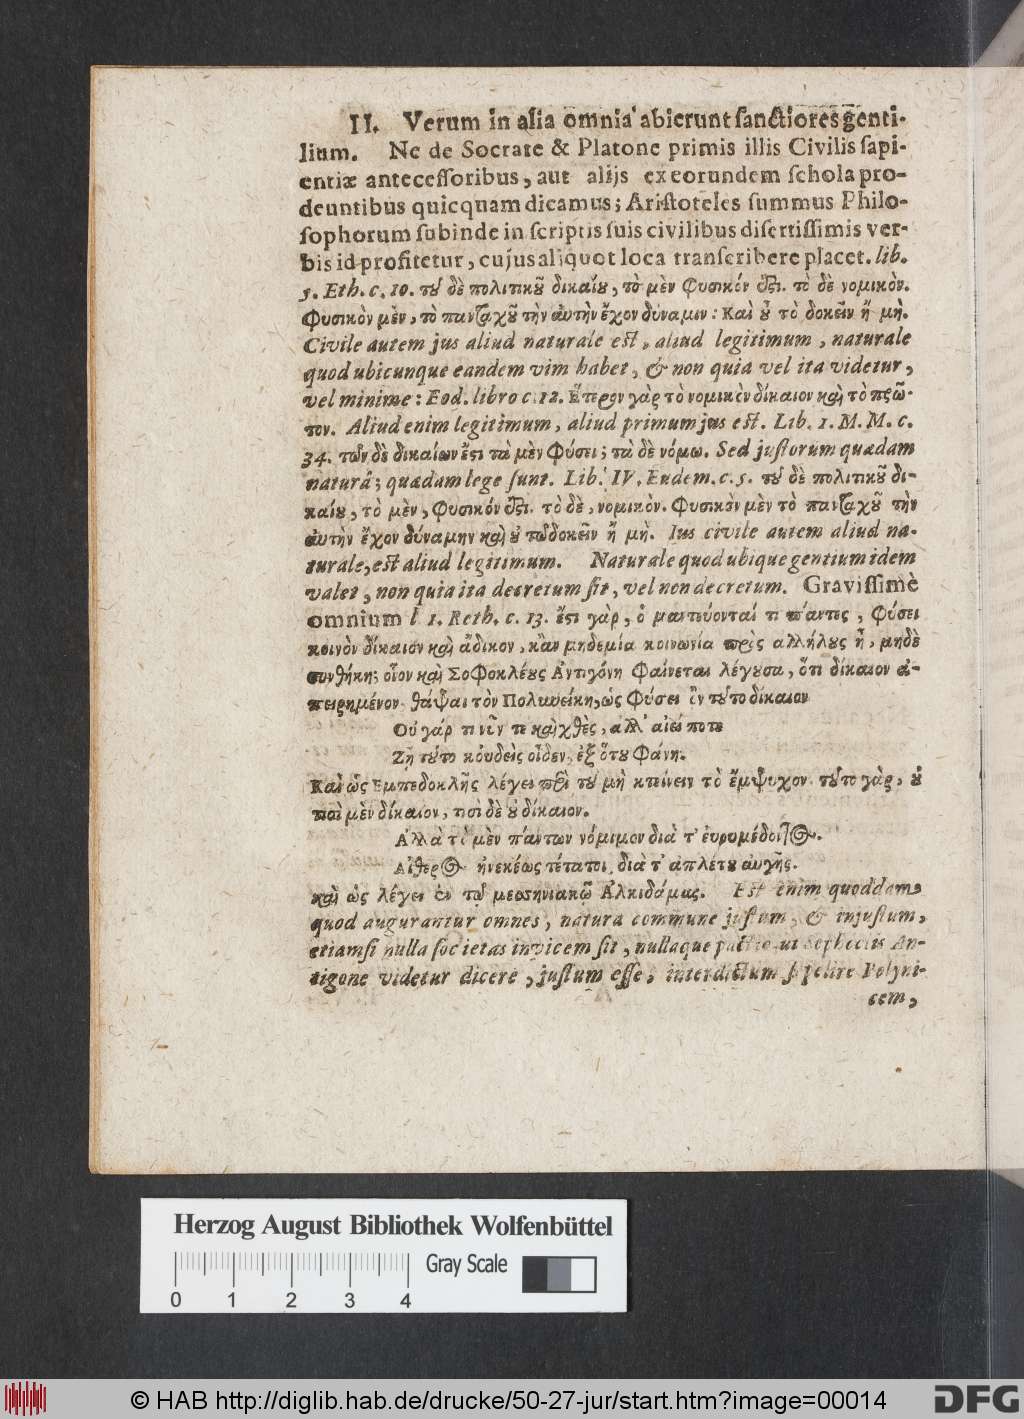 II. Verum in alia omnia abierunt sanctiores genti-
lium. Ne de Socrate & Platone primis illis Civilis sapi-
entiæ antecessoribus, aut alijs ex eorundem schola pro-
deuntibus quicquam dicamus; Aristoteles summus Philo-
sophorum subinde in scriptis suis civilibus disertissimis ver-
bis id profitetur, cujus aliquot loca transcribere placet. lib.
5. Eth. c. 10. τοῦ δὲ πολιτικοῦ δικαίου, τὸ μὲν φυσικόν ἐστι. τὸ δὲ νομικὸν.
Φυσικὸν μὲν, τὸ πανταχοῦ τὴν αὐτὴν ἔχον δύναμιν: Καὶ οὐ τὸ δοκεῖν ἢ μὴ.
Civile autem jus aliud naturale est, aliud legitimum, naturale
quod ubicunque eandem vim habet, & non quia vel ita videtur,
vel minime: Eod. libro c. 12. Ἕτερον γὰρ τὸ νομικὸν δίκαιον καὶ τὸ πρῶ-
τον. Aliud enim legitimum, aliud primum jus est. Lib. 1. M. M. c.
34. τῶν δὲ δικαίων ἔστι τὰ μὲν φύσει; τὰ δὲ νόμω. Sed justorum quædam
naturâ; quædam lege sunt. Lib. IV. Eudem. c. 5. τοῦ δὲ πολιτικοῦ δι-
καίου, τὸ μὲν, φυσικόν ἐστι. τὸ δὲ, νομικὸν. Φυσικὸν μὲν τὸ πανταχοῦ τὴν
αὐτὴν ἔχον δύναμην καὶ οὐ τῶ δοκεῖν ἢ μὴ. Ius civile autem aliud na-
turale, est aliud legitimum. Naturale quod ubique gentium idem
valet, non quia ita decretum sit, vel non decretum. Gravissimè
omnium l 1. Reth. c. 13. ἔστι γὰρ, ὁ μαντεύονταί τι πάντες, φύσει
κοινὸν δίκαιον καὶ ἄδικον, κἂν μηδεμία κοινωνία πρὸς ἀλλήλους ἦ, μηδὲ
συνθήκη; οἷον καὶ Σοφοκλέους Ἀντιγόνη φαίνεται λέγουσα, ὅτι δίκαιον ἀ-
πειρημένον θάψαι τὸν Πολυνείκη, ὡς φύσει ὂν τοῦτο δίκαιον
Οὐ γάρ τι νῦν τε καὶ χθὲς, ἀλλ' αἰεί ποτε
Ζῆ τοῦτο κοὐδεὶς οἶδεν, ἐξ ὅτου φάνη.
Καὶ ὡς Ἐμπεδοκλῆς λέγει περὶ τοῦ μὴ κτείνειν τὸ ἔμψυχον τοῦτο γὰρ, οὐ
τισὶ μὲν δίκαιον, τισὶ δὲ οὐ δίκαιον.
Ἀλλὰ τὸ μὲν πάντων νόμιμον διὰ τ' εὐρυμέδοντος.
Αἰθερος ἠνεκέως τέταται, διὰ τ' ἀπλέτου αὐγῆς.
καὶ ὡς λέγει ἐν τῷ μεσηνιακῷ Ἀλκιδάμας. Est enim quoddam,
quod augurantur omnes, natura commune justum, & injustum,
etiamsi nulla societas invicem sit, nullaque ut Sophoclis An-
tigone videtur dicere, justum esse, interdictum sepelire Polyni-
cem,
Herzog August Bibliothek Wolfenbüttel
0 1 2 3 4
Gray Scale
© HAB http://diglib.hab.de/drucke/50-27-jur/start.htm?image=00014
DFG